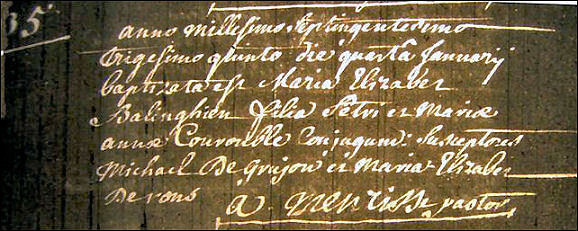 35
anno millesimo septingentesimo
trigesimo quinto die quarta January
baptizata est Maria Elizabet
Balinghien filia Petri et Mariæ
annæ Courouble conjugum: susceptores
Michael De Grijou et Maria Elizabet
De rons
a. pastor